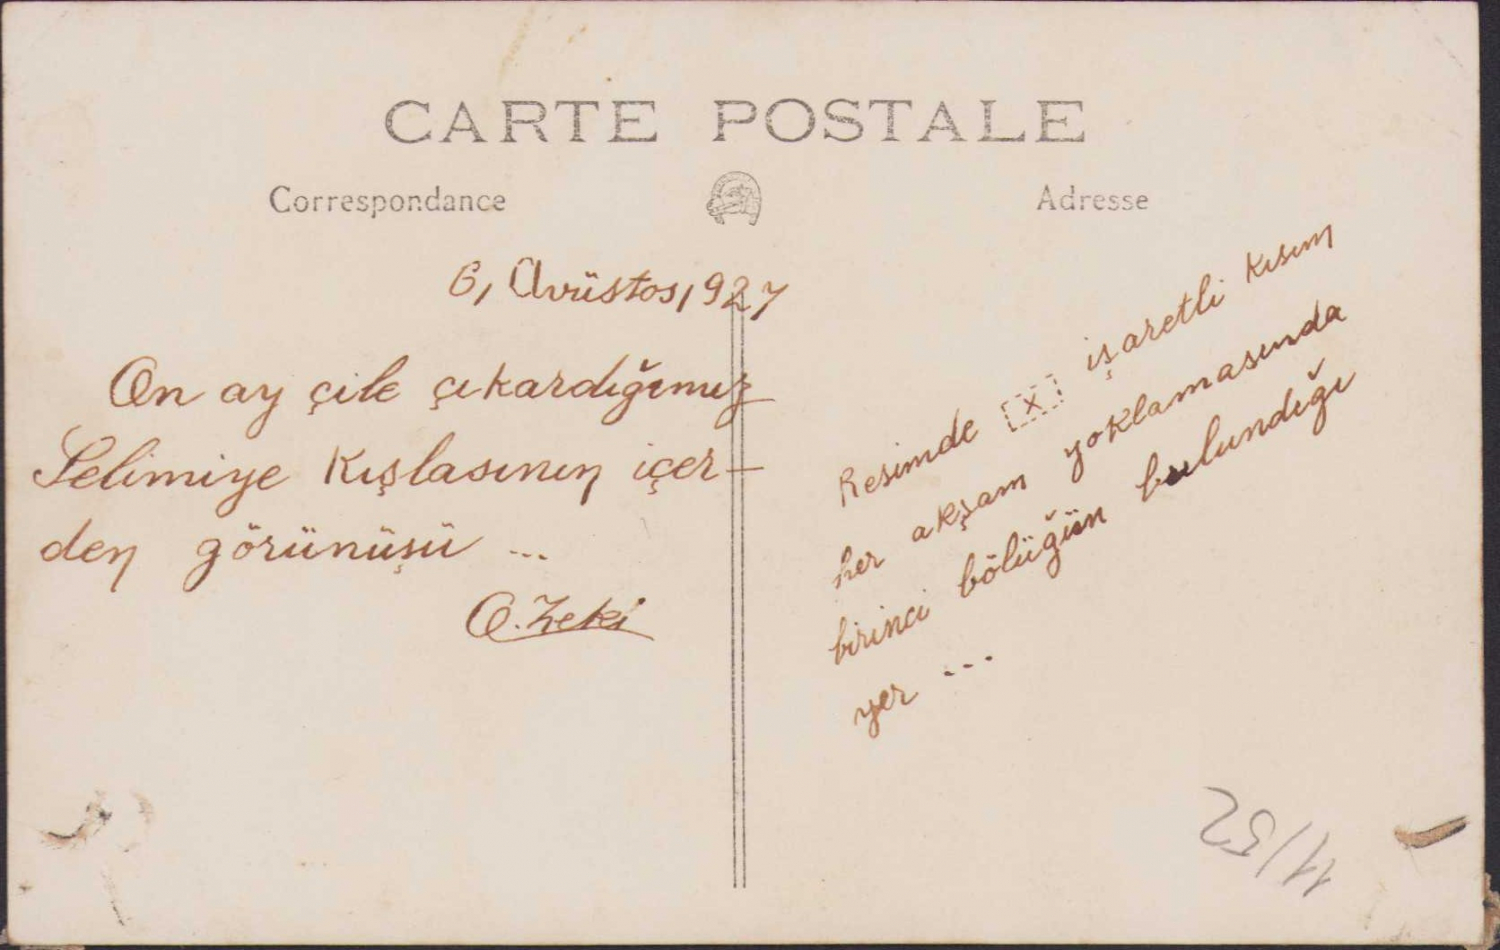 CARTE POSTALE
Correspondance
Adresse
6, Avüstos, 927
On ay çile çıkardığımız
Selimiye Kışlasının içer-
den görünüşü ...
A. Zeki
Resimde [x] işaretli kısım
her akşam yoklamasında
birinci bölüğün bulundığı
yer ...
11/52